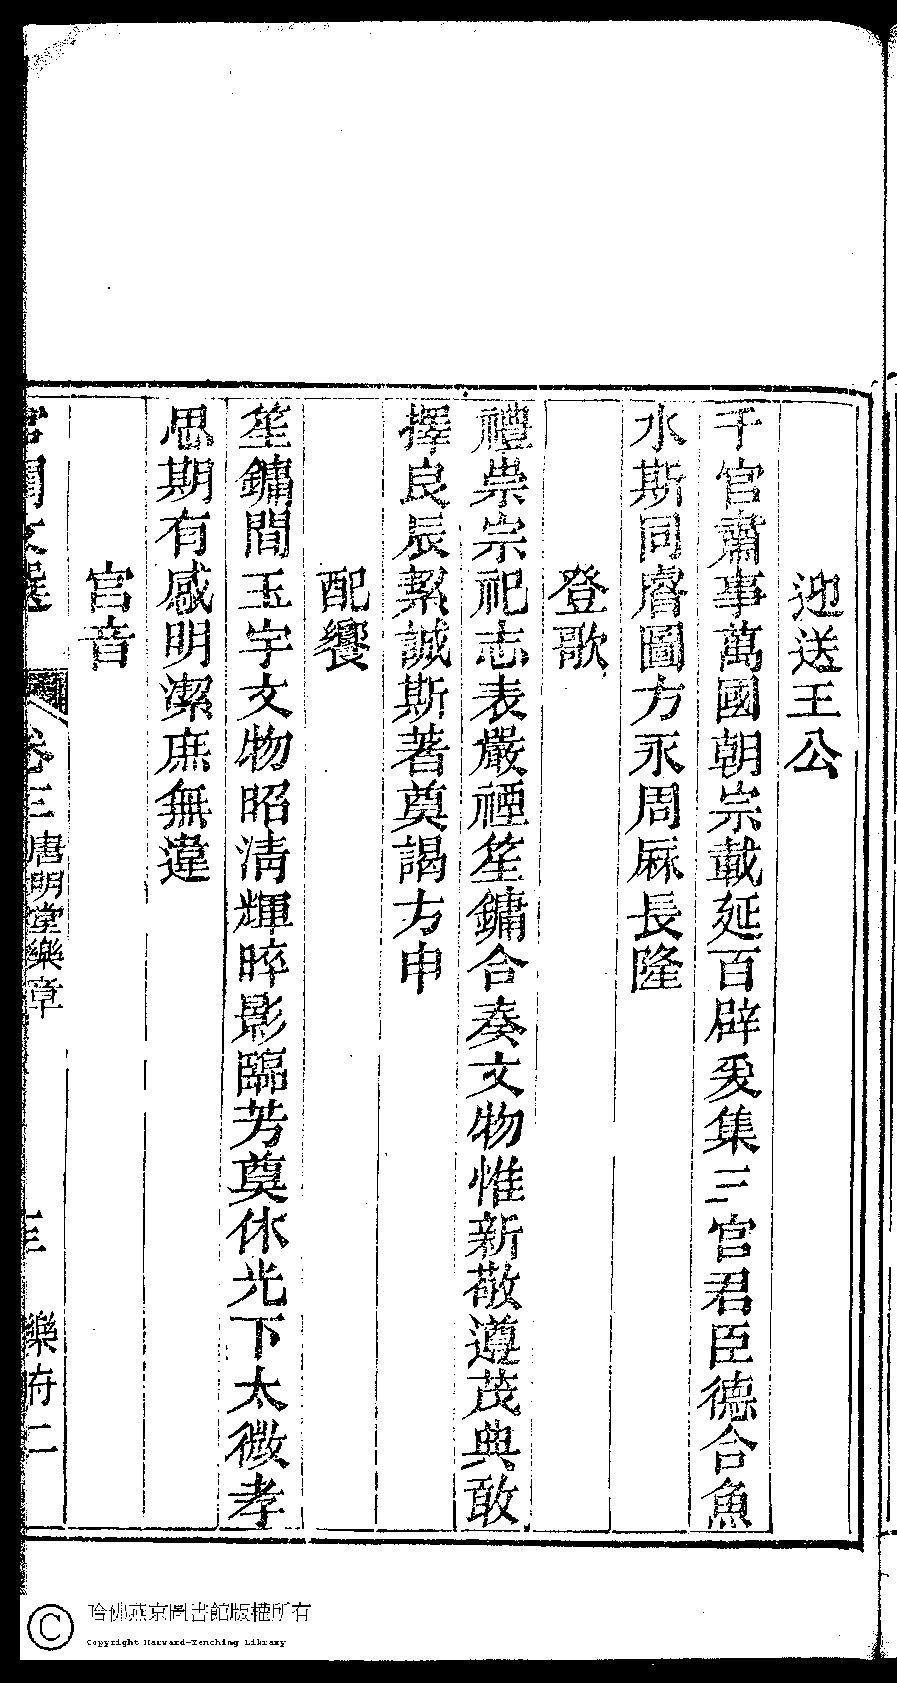 迎送王公
千官肅事萬國朝宗載延百辟爰集三宮君臣德合魚
水斯同睿圖方永周厤長隆
登歌
禮崇宗祀志表嚴禋笙鏞合奏文物惟新敬遵茂典敢
擇良辰絜誠斯著奠謁方申
配饗
笙鏞間玉宇文物昭清輝晬影臨芳奠休光下太微孝
思期有感明潔庶無違
宮音
宮閨文選 卷三 唐明堂樂章 三 樂府二
哈佛燕京圖書館版權所有
Copyright Harvard-Yenching Library